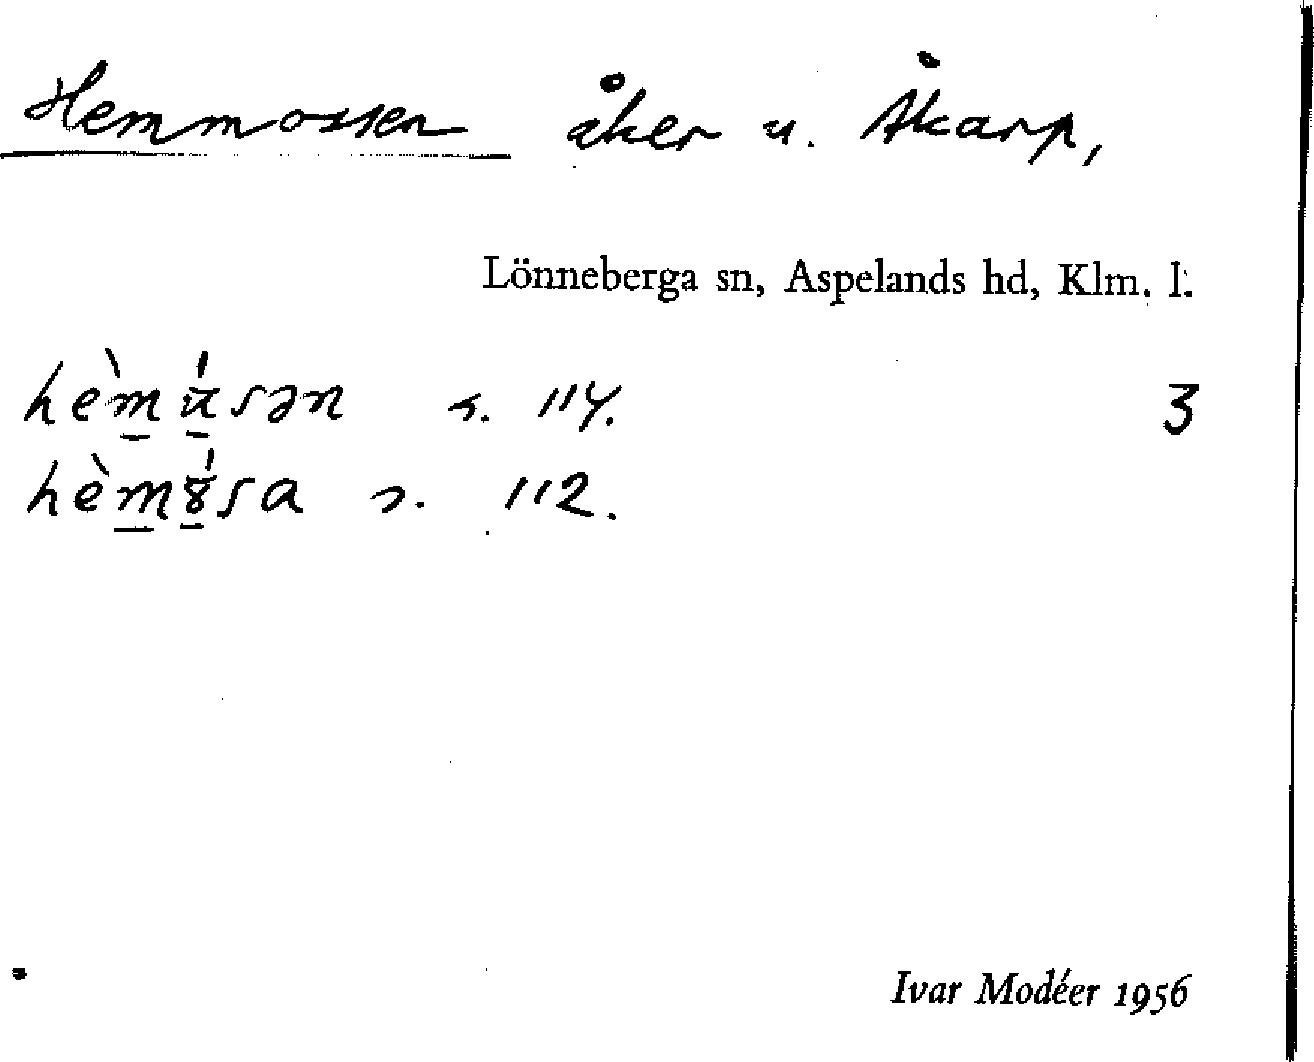 Hemmossen åker u. Åkarp,
Lönneberga sn, Aspelands hd, Klm. l.
s. 114. 3
s. 112.
Ivar Modéer 1956